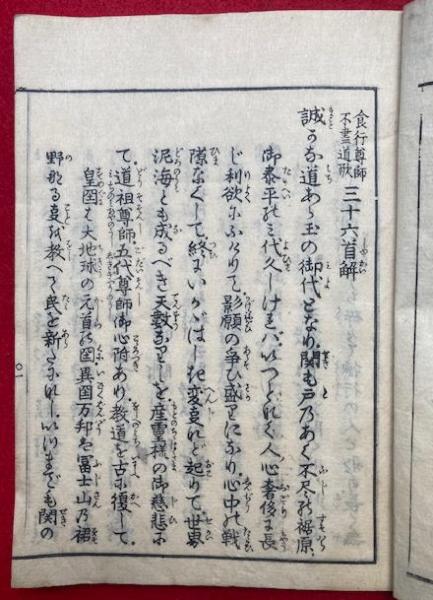 食行尊師
不書道歌
三十六首解
誠の道あら玉の御代となり関も戸乃あく不尽の裾原
御泰平の三代久しければいつとなく人心奢侈に長
じ利欲にふけりて影願の争ひ盛りになり心中の戦
隙なくして終にいかがはしき変事など起りて世界
泥海とも成るべき天数なりしを産霊様の御慈悲に
て道祖尊師五代尊師御心附あり教道を古に復して
皇国は大地球の元首の国異国万邦は冨士山乃裾
野なる事を教へて民を新たにしいつまでも関の